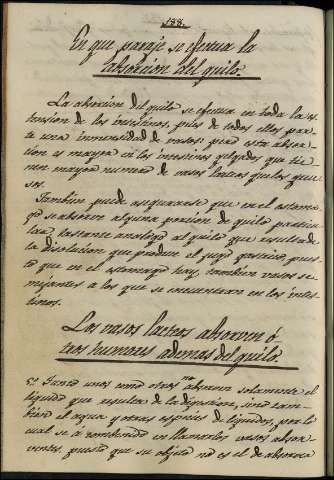 188.
En que paraje se efectua la
absorcion del quilo.
La absorcion del quilo se efectua en toda la ex-
tension de los intestinos, pues de todos ellos par-
te una inmensidad de vasos: pero esta absor-
cion es mayor en los intestinos delgados que tie-
nen mayor numero de vasos lacteos que los grue-
sos.
Tambien puede asegurarse que en el estoma-
go se absorve alguna porcion de quilo particu-
lar, bastante analogo al quilo que resulta de
la disolucion que produce el jugo gastrico, pues-
to que en el estomago hay tambien vasos se-
mejantes a los que se encuentran en los intes-
tinos.
Los vasos lacteos absorven ó
tros humores ademas del quilo.
Tanto unos como otros no absorven solamente el
liquido que resulta de la digestion, sino tam-
bien el agua y otras especies de liquidos, por lo
cual se á combenido en llamarlos vasos absor-
ventes, puesto que su objeto no es el de absorver